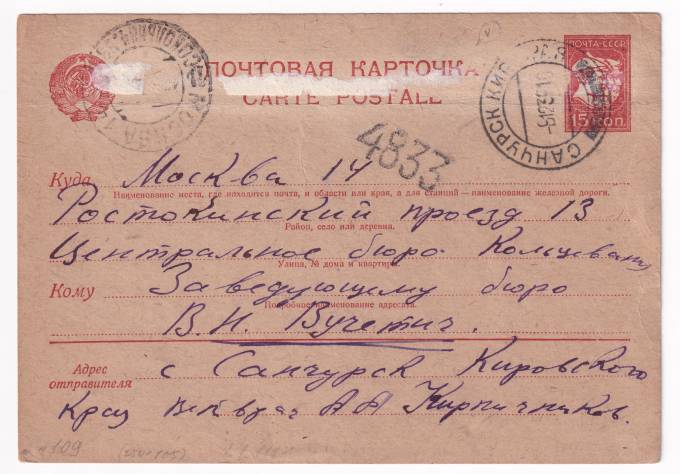 ПОЧТОВАЯ КАРТОЧКА
CARTE POSTALE
ПОЧТА-СССР
15 КОП.
МОСКВА 14
САНЧУРСК КИР
4833
Куда Москва 14
Наименование места, где находится почта, и области или края, а для станций — наименование железной дороги.
Ростокинский проезд 13
Район, село или деревня.
Центральное бюро Кольцевания
Улица, № дома и квартиры.
Кому Заведующему бюро
Подробное наименование адресата.
В. Н. Вучетич.
Адрес отправителя с Санчурск Кировского
Края Ветврач А А Кирпичников.
109